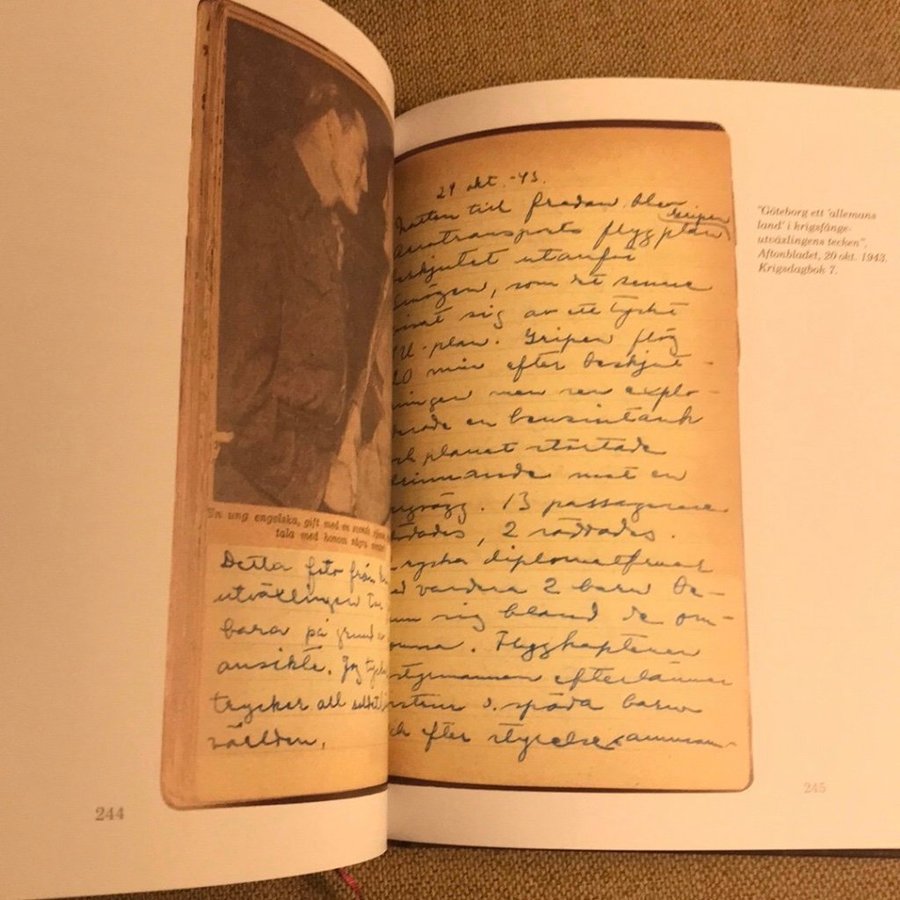 En ung engelska, gift med en svensk
tala med honom några
Detta foto från
utväxlingen
bara på grund
ansikte. Jag
trycker all
världen.
244
29 okt. -43.
Natten till fredan blev
Gripen
Aerotransports flygplan
utanför
som det senare
sig av ett tyskt
-plan. Gripen flög
20 min efter beskjut-
ningen men sen explo-
derade en bensintank
och planet störtade
brinnande mot en
13 passagerare
dödades, 2 räddades.
ryska diplomatfruar
vardera 2 barn be-
sig bland de om-
komna. Flygkaptenen
efterlämnar
o. späda barn
efter styrelse
"Göteborg ett 'allemans
land' i krigsfånge-
utväxlingens tecken",
Aftonbladet, 20 okt. 1943.
Krigsdagbok 7.
245